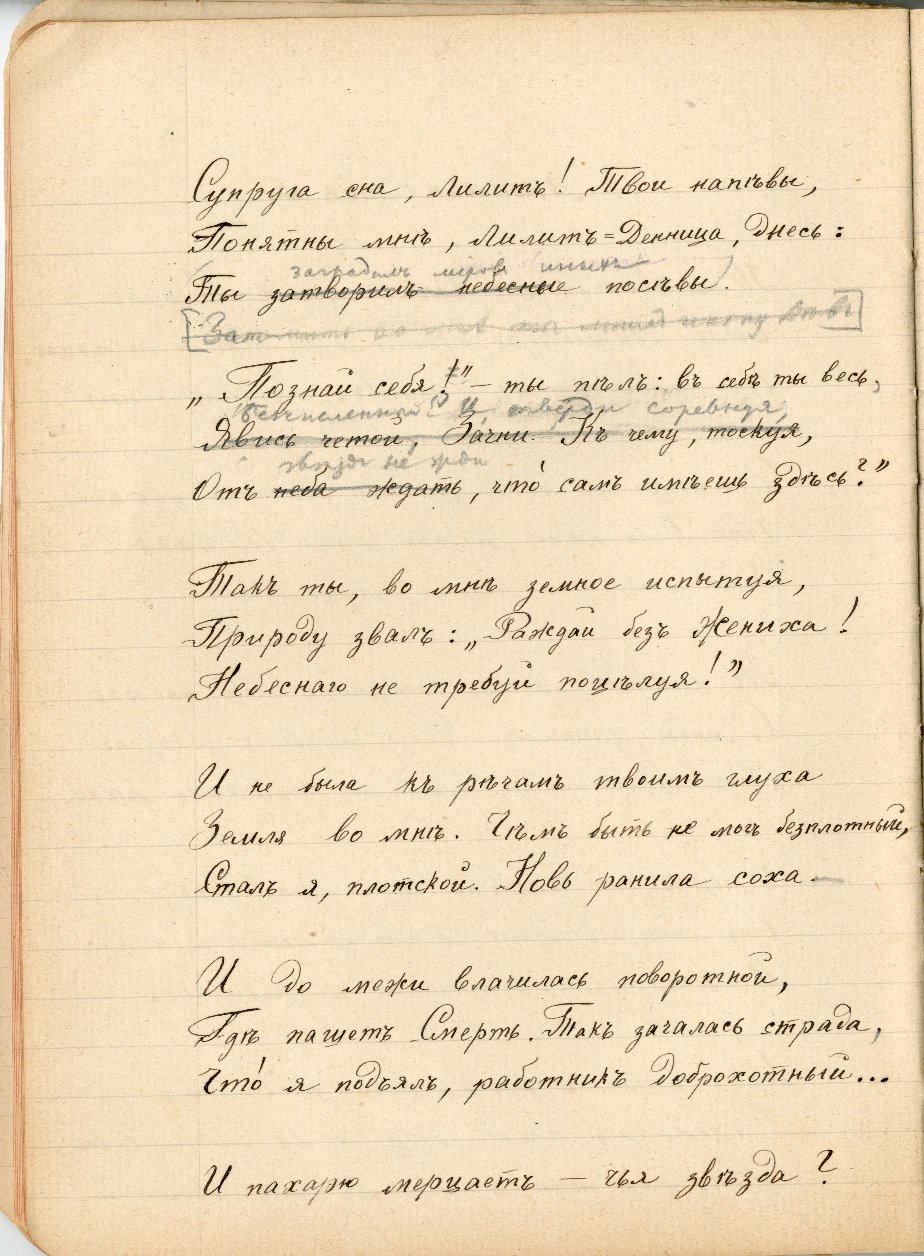 Супруга сна, Лилитъ! Твои напѣвы,
Понятны мнѣ, Лилитъ=Денница, днесь:
заградилъ міровъ иныхъ
Ты затворилъ небесные посѣвы.
„Познай себя!” – ты пѣлъ: въ себѣ ты весь,
И тверди соревнуя,
Явись четой, Зачни. Къ чему, тоскуя,
звѣзды не жди
Отъ неба ждать, что́ самъ имѣешь здѣсь?”
Такъ ты, во мнѣ земное испытуя,
Природу звалъ: „Раждай безъ Жениха!
Небеснаго не требуй поцѣлуя!”
И не была къ рѣчамъ твоимъ глуха
Земля во мнѣ. Чѣмъ быть не могъ безплотный,
Сталъ я, плотской. Новь ранила соха –
И до межи влачилась поворотной,
Гдѣ пашетъ Смерть. Такъ зачалась страда,
Что́ я подъялъ, работникъ доброхотный...
И пахарю мерцаетъ – чья звѣзда?